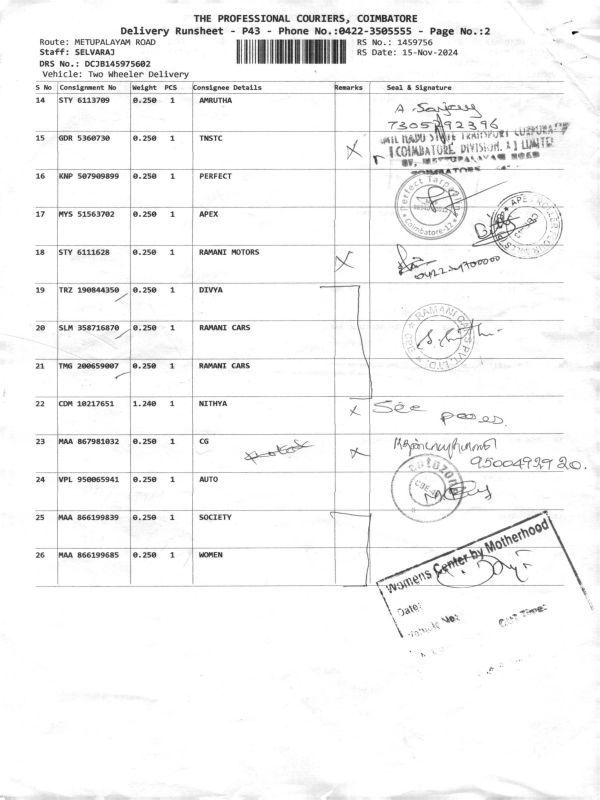 THE PROFESSIONAL COURIERS, COIMBATORE
Delivery Runsheet - P43 - Phone No.:0422-3505555 - Page No.:2
Route: METUPALAYAM ROAD RS No.: 1459756
Staff: SELVARAJ RS Date: 15-Nov-2024
DRS No.: DCJB145975602
Vehicle: Two Wheeler Delivery
S No Consignment No Weight PCS Consignee Details Remarks Seal & Signature
14 STY 6113709 0.250 1 AMRUTHA
15 GDR 5360730 0.250 1 TNSTC
16 KNP 507909899 0.250 1 PERFECT
17 MYS 51563702 0.250 1 APEX
18 STY 6111628 0.250 1 RAMANI MOTORS
19 TRZ 190844350 0.250 1 DIVYA
20 SLM 358716870 0.250 1 RAMANI CARS
21 TMG 200659007 0.250 1 RAMANI CARS
22 CDM 10217651 1.240 1 NITHYA
23 MAA 867981032 0.250 1 CG
24 VPL 950065941 0.250 1 AUTO
25 MAA 866199839 0.250 1 SOCIETY
26 MAA 866199685 0.250 1 WOMEN
STATE TRANSPORT
(COIMBATORE DIVISION. I) LIMITED
METTUPALAYAM ROAD
COIMBATORE
Perfect
Coimbatore-12
APEX
RAMANI CARS PVT. LTD.
See
9500492920.
Womens Center by Motherhood
Date:
Vehicle No:
Out Time: